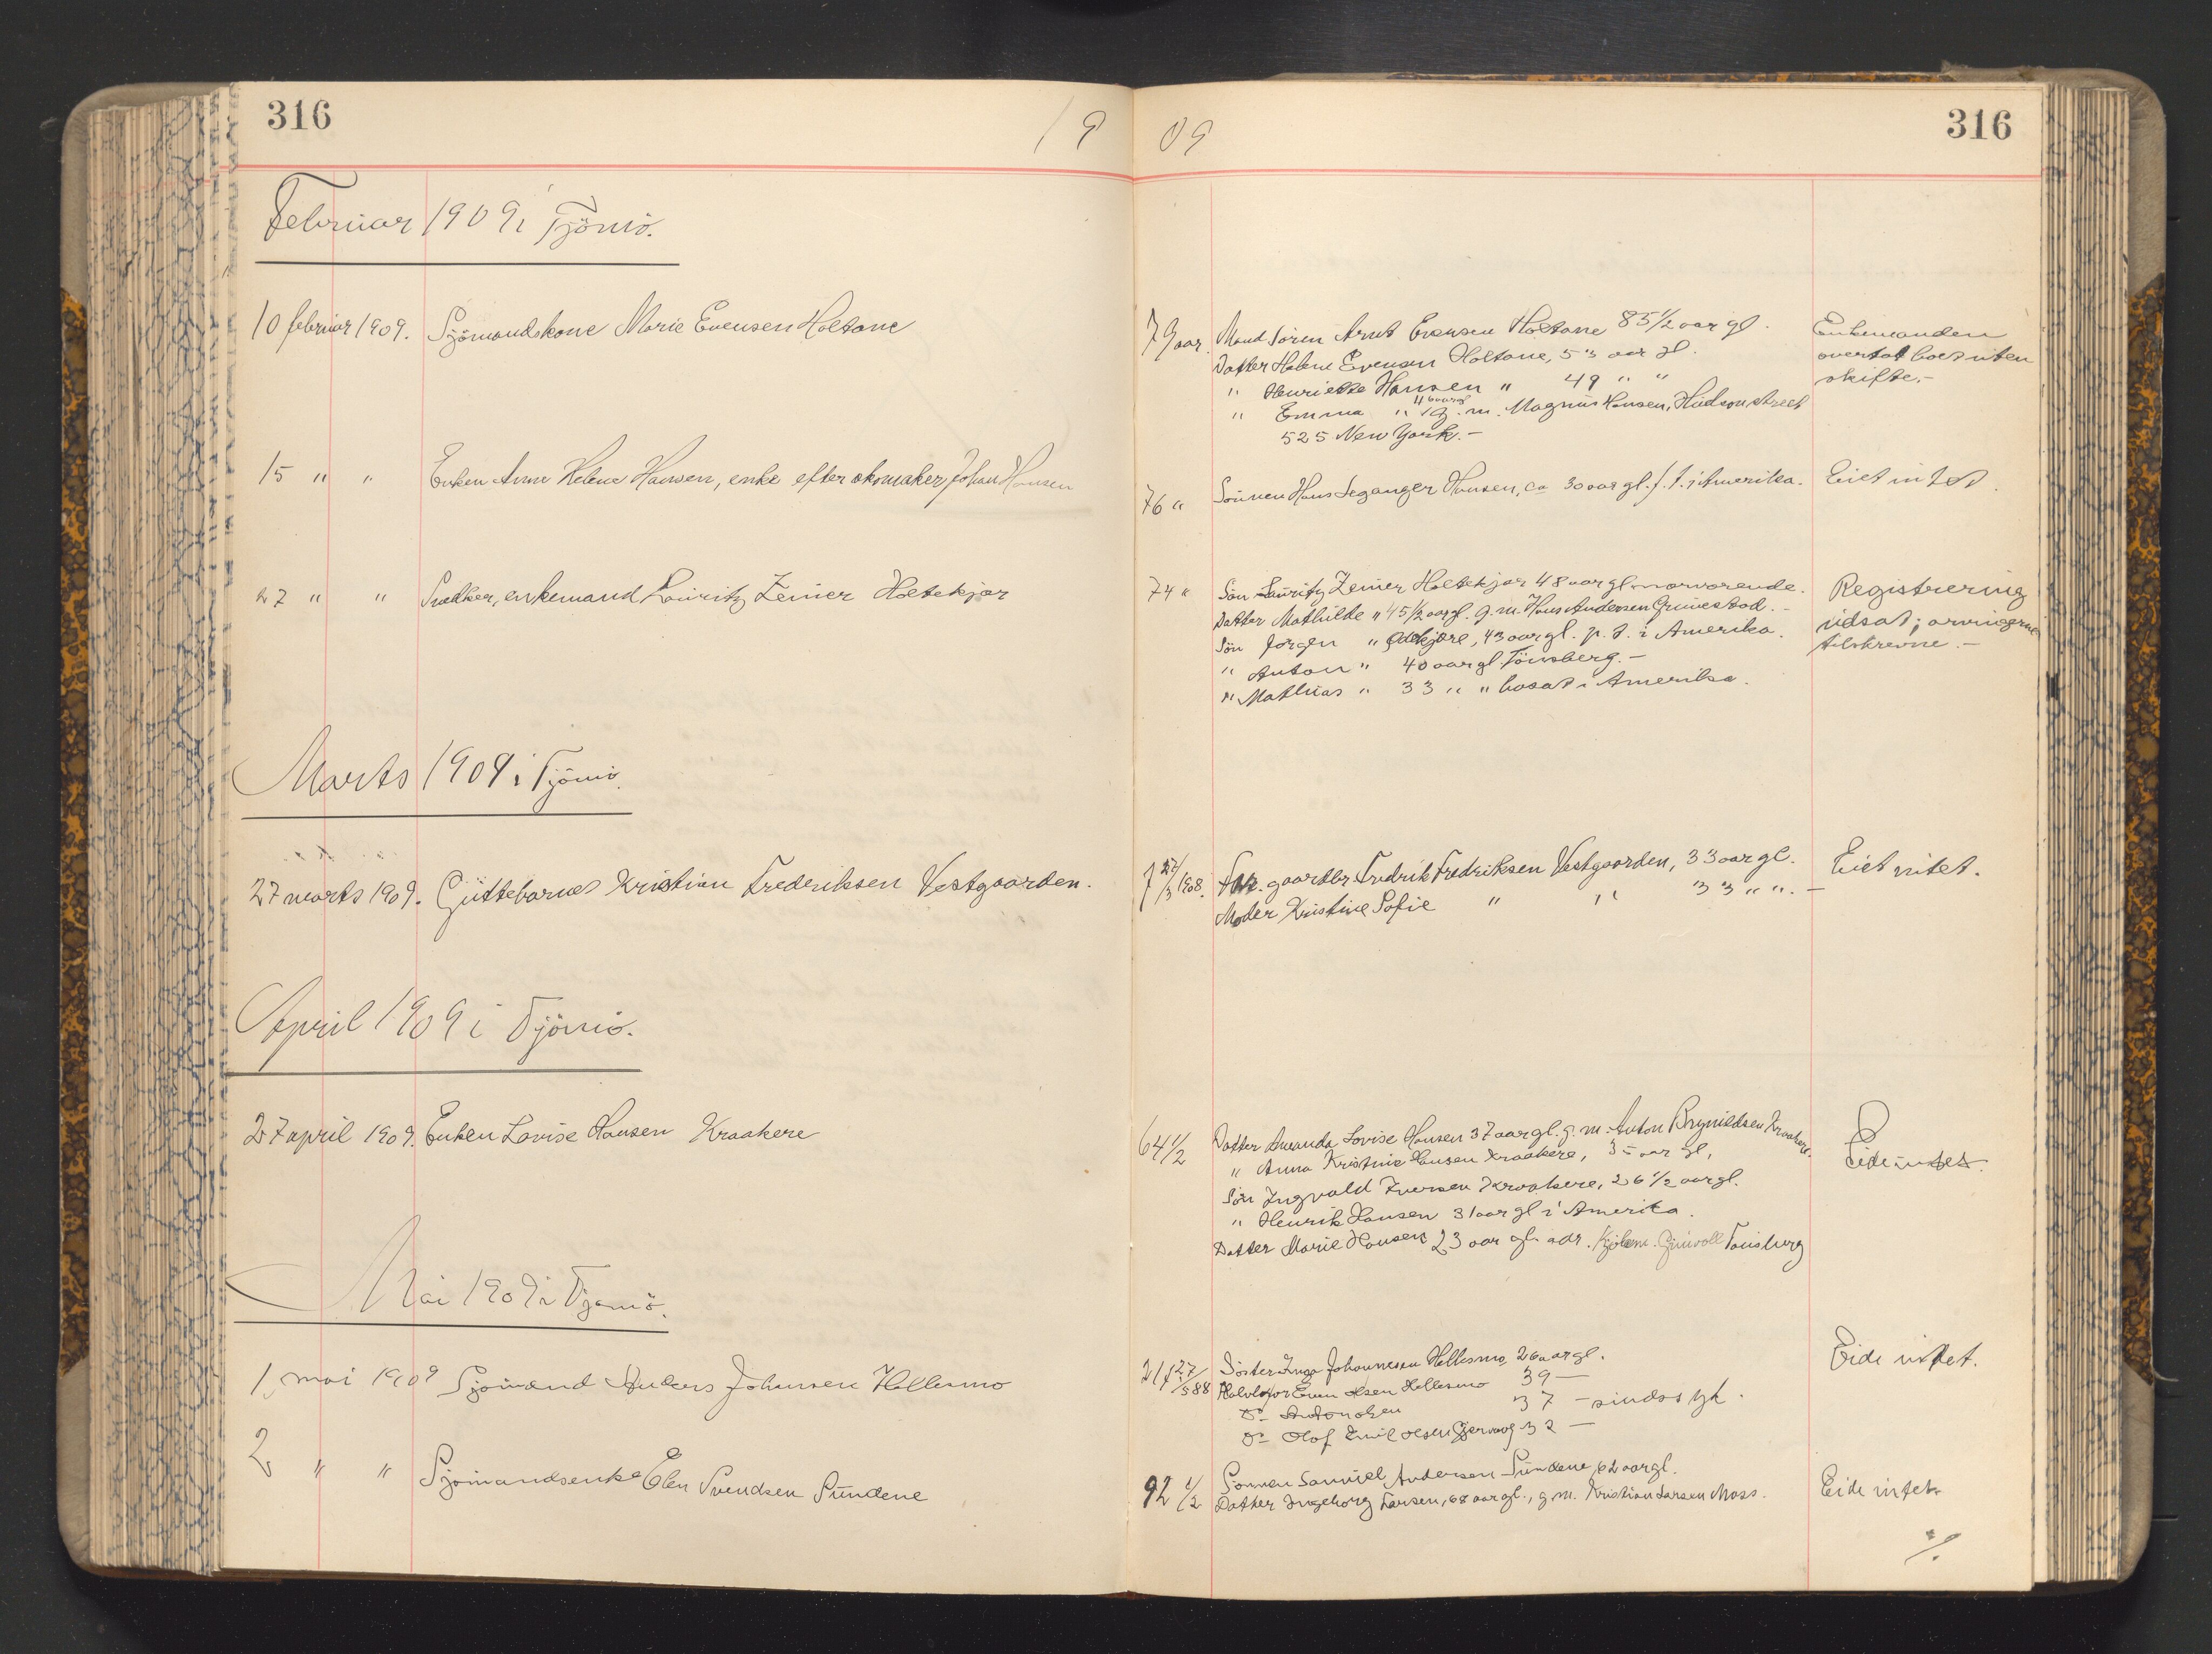 316
19 09
316
Februar 1909 i Tjömö.
10 februar 1909. Sjömandskone Marie Evensen Holtane
79 aar. Mand Sören Arnt Evensen Holtane 85 1/2 aar gl.
Datter Helene Evensen Holtane, 53 aar gl.
" Henriette Hansen " 49 " "
" Emma " 46 aar gl g. m. Magnus Hansen, Hudson street
525 New York.-
Enkemanden
overtok boet uten
skifte.-
15 " " Enken Anne Helene Hansen, enke efter skomaker Johan Hansen
76 " Sönnen Hans Seganger Hansen, ca 30 aar gl. f. t. i Amerika.
Eiet intet.
27 " " Snedker, enkemand Lauritz Zeiner Holtekjær
74 " Sön Lauritz Zeiner Holtekjær 48 aar gl. nærværende.
Datter Mathilde " 45 1/2 aar gl. g. m. Hans Andersen Grimestad.-
Sön Jörgen " 43 aar gl. p. t. i Amerika.
" Anton " 40 aar gl. Tönsberg.-
" Mathias " 33 " " bosat i Amerika.
Registrering
udsat; arvingerne
tilskrevne.-
Marts 1909 i Tjömö.
27 marts 1909. Guttebarnet Kristian Frederiksen Vestgaarden.
27/3 1908. Far. gaardbr. Fredrik Fredriksen Vestgaarden, 33 aar gl.
Moder Kristine Sofie " " 33 " ".-
Eiet intet.
April 1909 i Tjömö.
27 april 1909. Enken Lovise Hansen Kraakere
64 1/2 Datter Amanda Lovise Hansen 37 aar gl. g. m. Anton Brynildsen Kraakere.
" Anna Kristine Hansen Kraakere, 35 aar gl,
Sön Ingvald Iversen Kraakere, 26 1/2 aar gl.
" Henrik Hansen 31 aar gl i Amerika.
Datter Marie Hansen 23 aar gl. adr. Tönsberg
Eide intet.
Mai 1909 i Tjömö.
1 mai 1909 Sjömand Anders Johnsen Hellesmo
21 f 27/5 88 Söster Inga Johannesen Hellesmo 26 aar gl.
Halvbror Even Olsen Hellesmo 39 —
Do Anton Olsen 37 - sindssyk.
Do Olof Emil Olsen 32 —
Eide intet.
2 " " Sjömandsenke Elen Svendsen Sundene
92 1/2 Sönnen Samuel Andersen Sundene 62 aar gl.
Datter Ingeborg Larsen, 68 aar gl., g. m. Kristian Larsen Moss.
Eide intet.